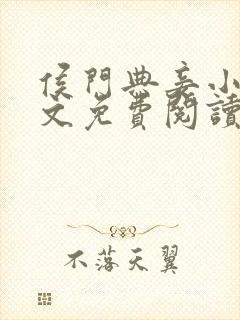 侯門典妾小
文免費閱讀
不落天翼